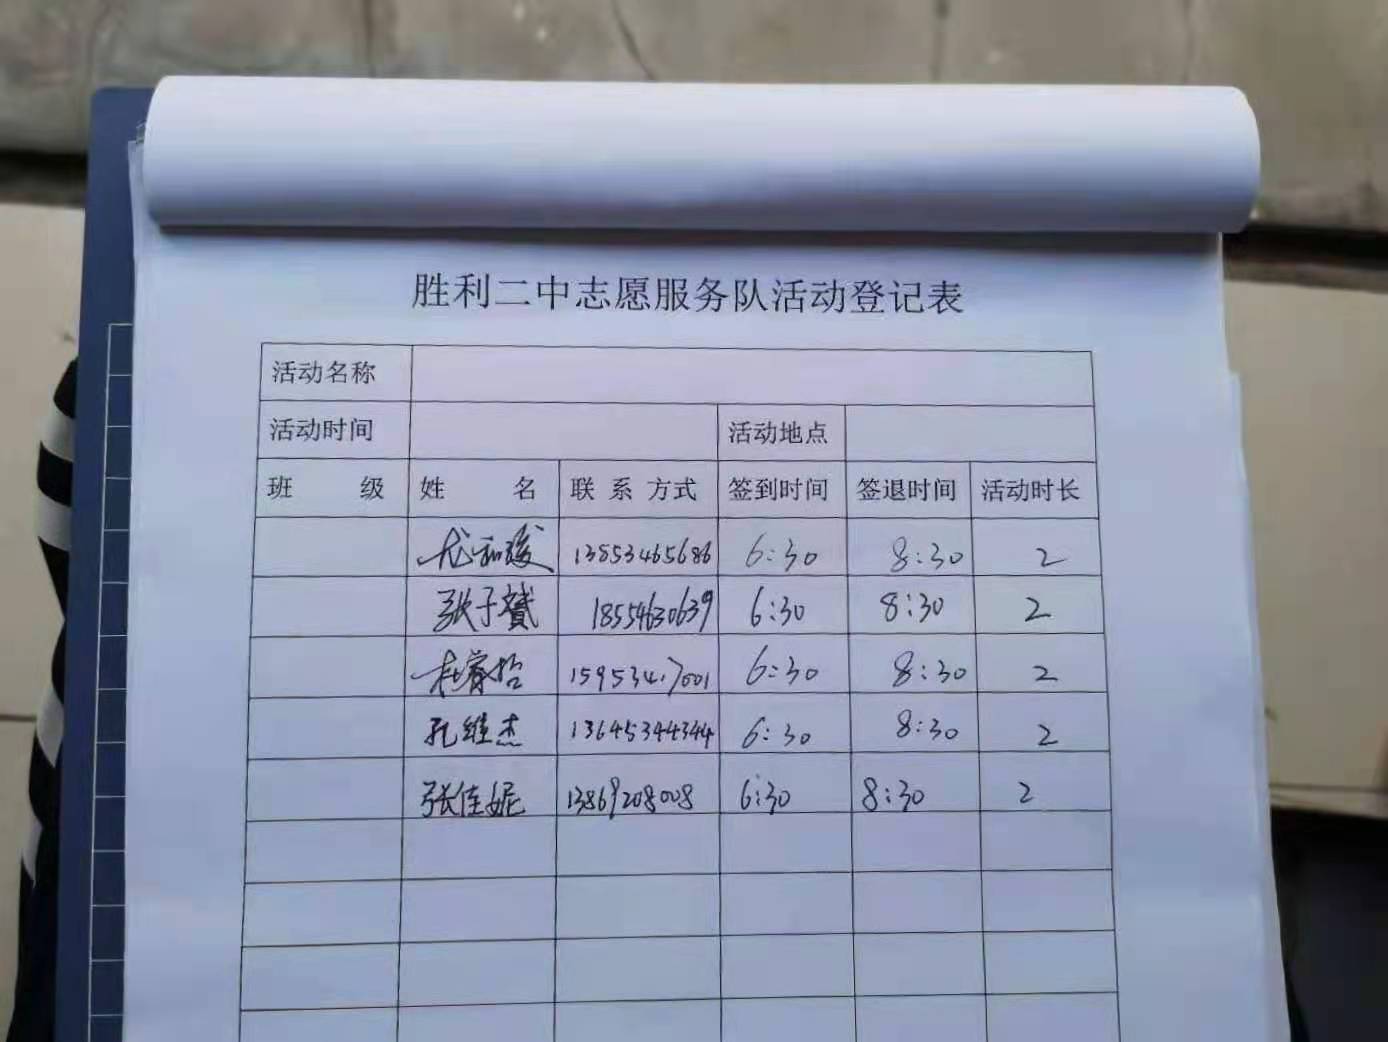 胜利二中志愿服务队活动登记表
活动名称
活动时间 活动地点
班 级 姓 名 联系方式 签到时间 签退时间 活动时长
13853465686 6:30 8:30 2
张子赟 18554630639 6:30 8:30 2
杜睿哲 6:30 8:30 2
孔维杰 13645344344 6:30 8:30 2
张佳妮 13869208008 6:30 8:30 2